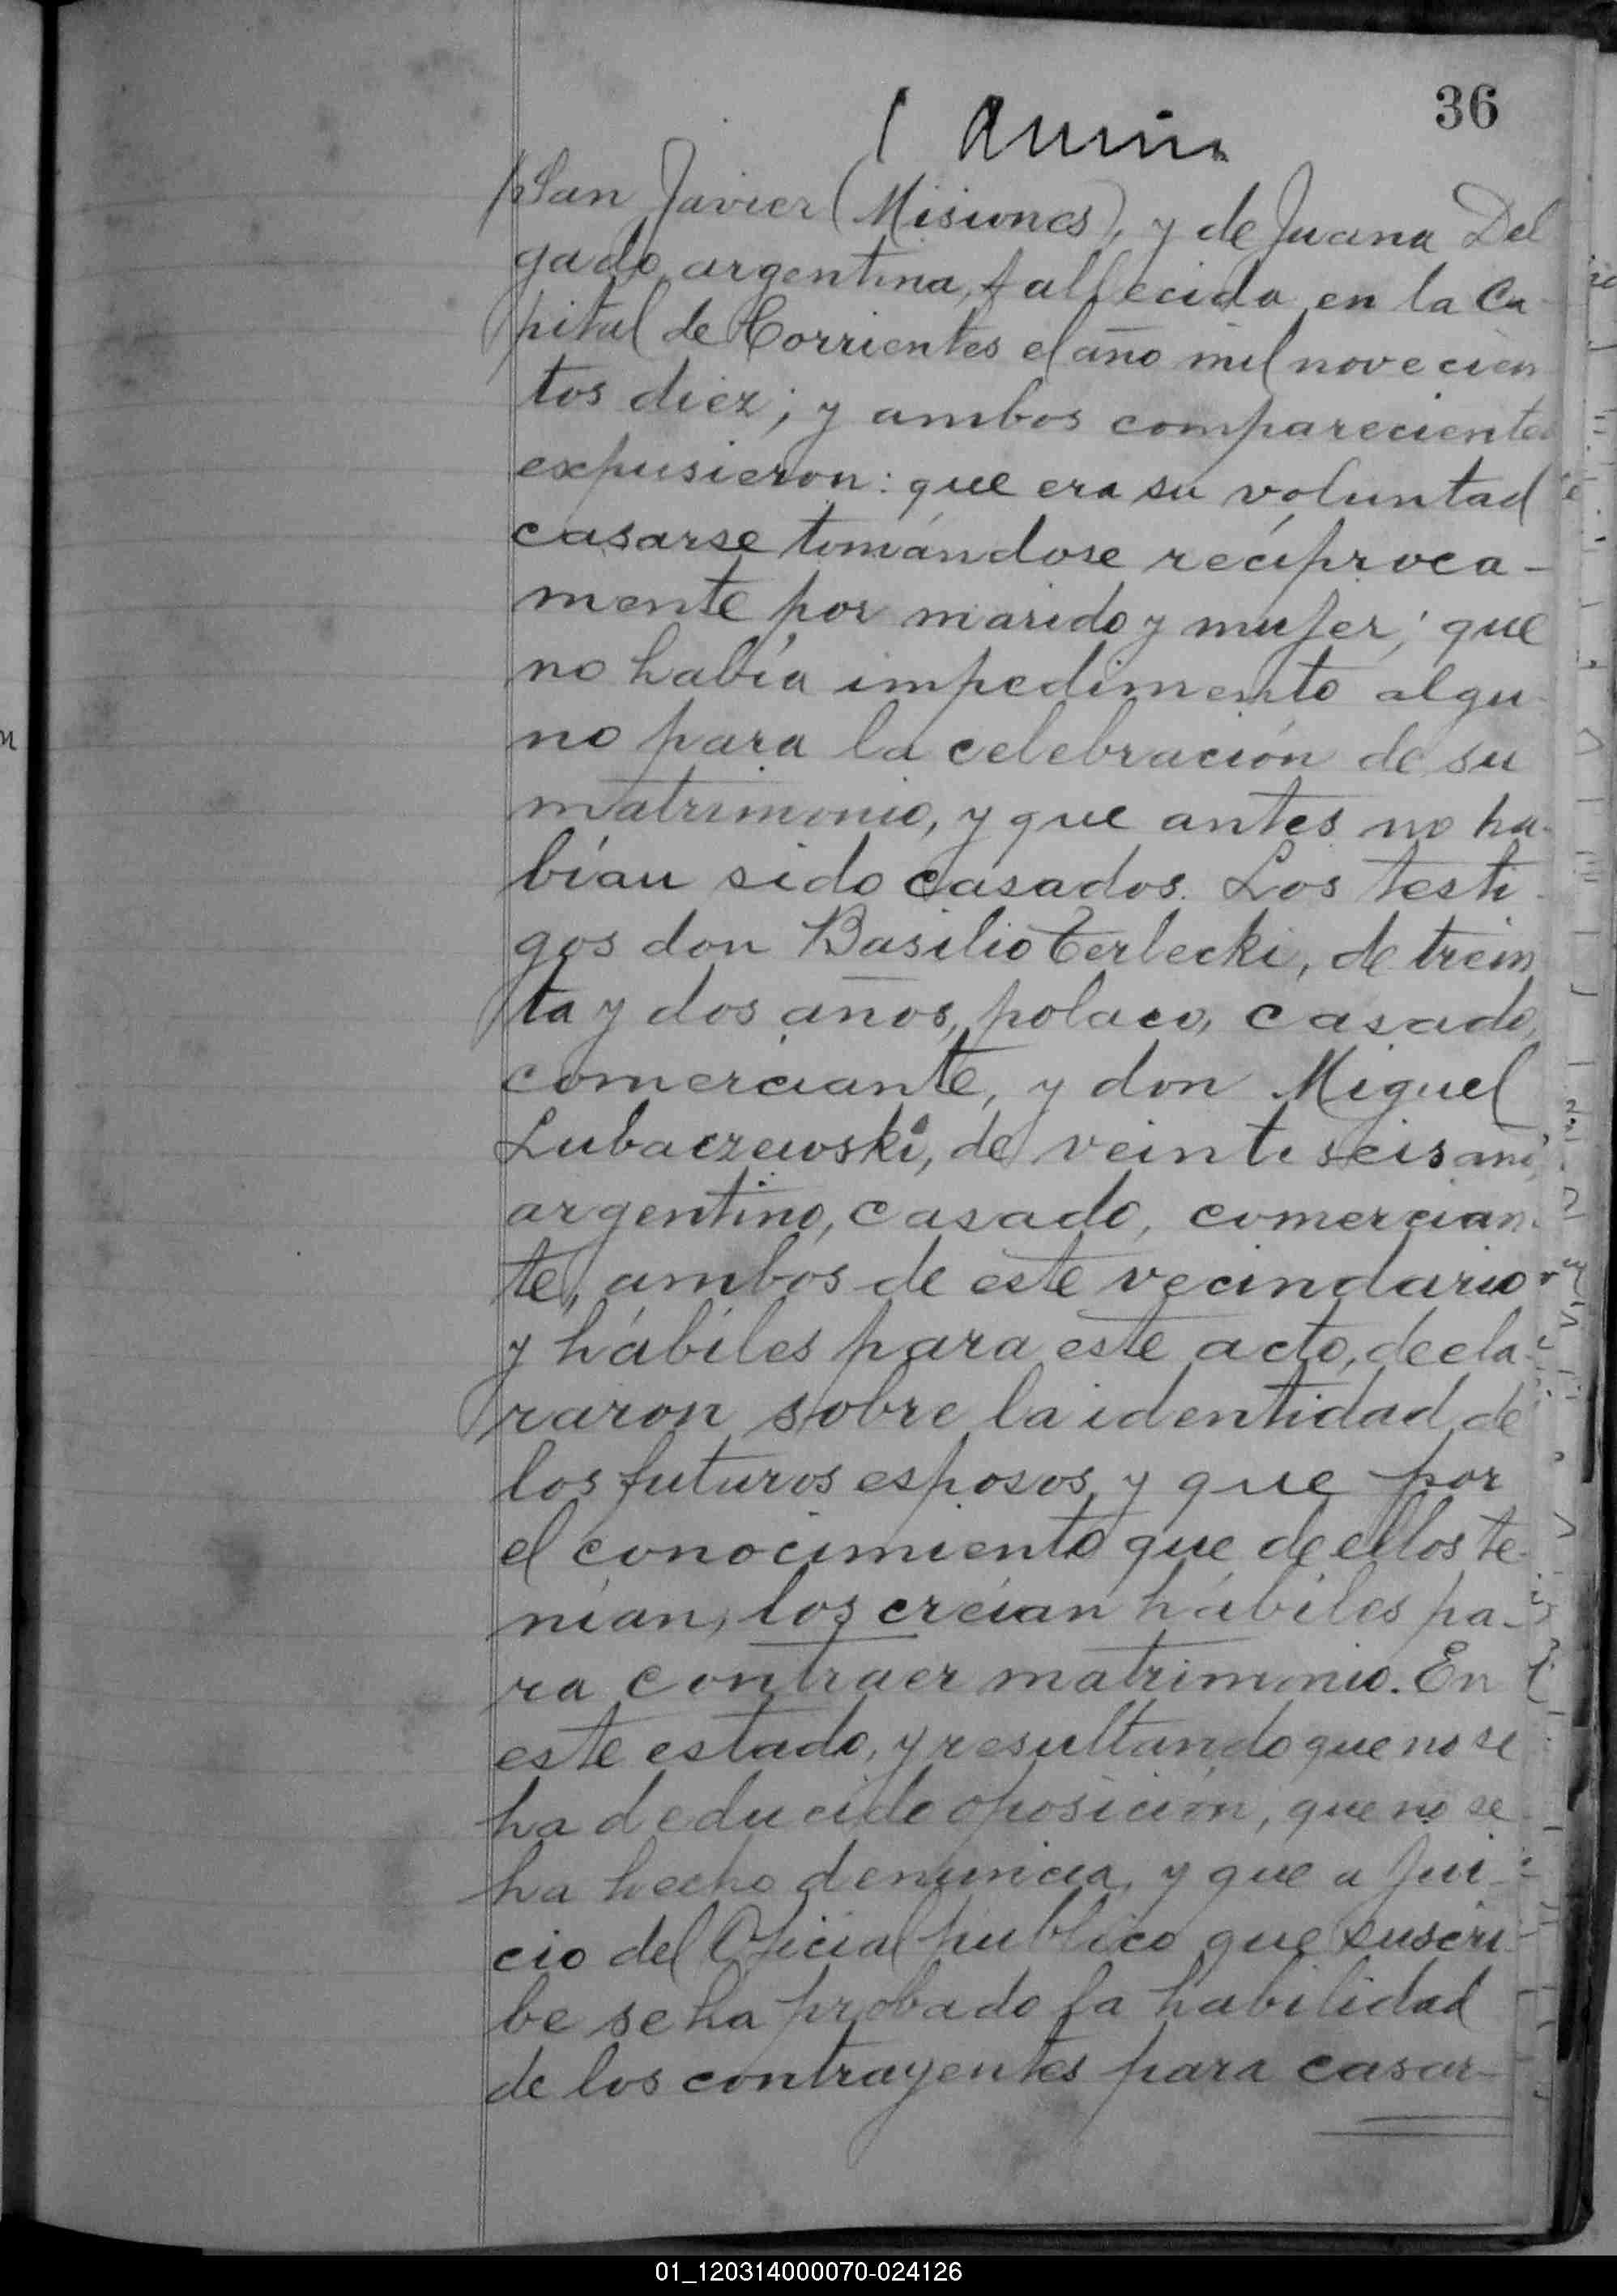 36
San Javier (Misiones), y de Juana Del
gado, argentina, fallecida en la Ca
pital de Corrientes el año mil novecien
tos diez; y ambos comparecientes
expusieron: que era su voluntad
casarse tomándose recíproca-
mente por marido y mujer; que
no había impedimento algu
no para la celebración de su
matrimonio, y que antes no ha-
bían sido casados. Los testi-
gos don Basilio Terlecki, de trein
ta y dos años, polaco, casado,
comerciante, y don Miguel
Lubaczewski, de veinti seis
argentino, casado, comercian-
te, ambos de este vecindario
y hábiles para este acto, decla-
raron sobre la identidad de
los futuros esposos, y que por
el conocimiento que de ellos te-
nían, los creían hábiles pa-
ra contraer matrimonio. En
este estado, y resultando que no se
ha deducido oposición, que no se
ha hecho denuncia, y que a jui-
cio del Oficial público que suscri-
be se ha probado la habilidad
de los contrayentes para casar-
01_120314000070-024126